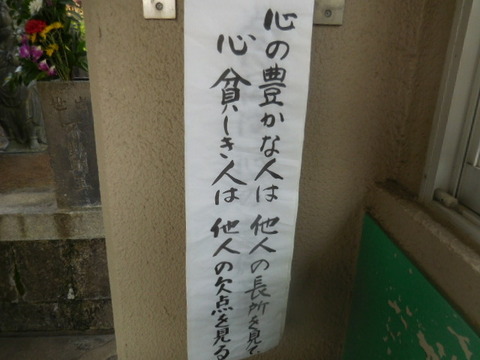 心の豊かな人は 他人の長所を見て
心貧しき人は 他人の欠点を見る